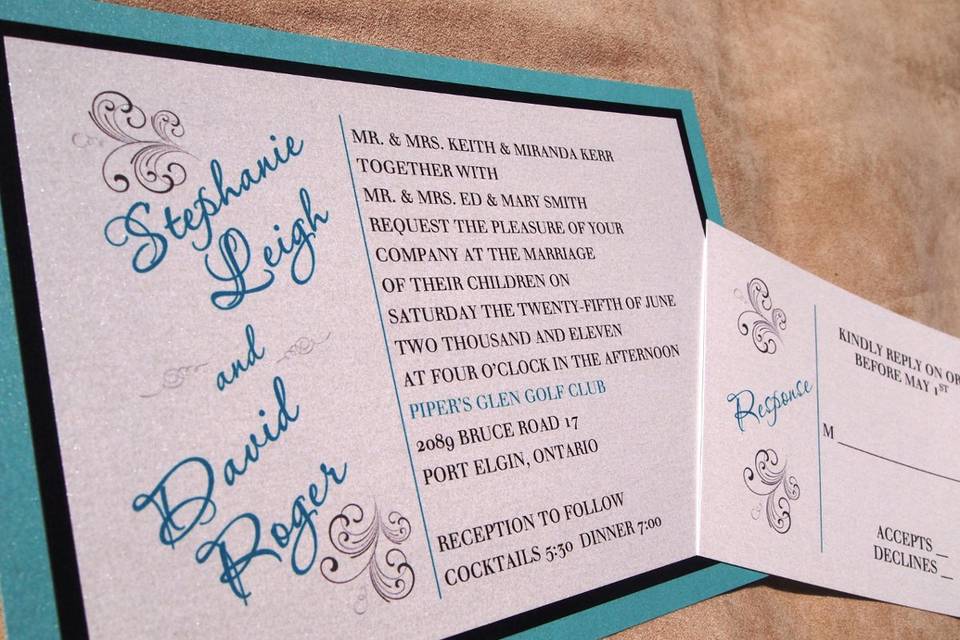 Stephanie
Leigh
and
David
Roger
MR. & MRS. KEITH & MIRANDA KERR
TOGETHER WITH
MR. & MRS. ED & MARY SMITH
REQUEST THE PLEASURE OF YOUR
COMPANY AT THE MARRIAGE
OF THEIR CHILDREN ON
SATURDAY THE TWENTY-FIFTH OF JUNE
TWO THOUSAND AND ELEVEN
AT FOUR O'CLOCK IN THE AFTERNOON
PIPER'S GLEN GOLF CLUB
2089 BRUCE ROAD 17
PORT ELGIN, ONTARIO
RECEPTION TO FOLLOW
COCKTAILS 5:30 DINNER 7:00
Response
KINDLY REPLY ON OR
BEFORE MAY 1ST
M
ACCEPTS
DECLINES